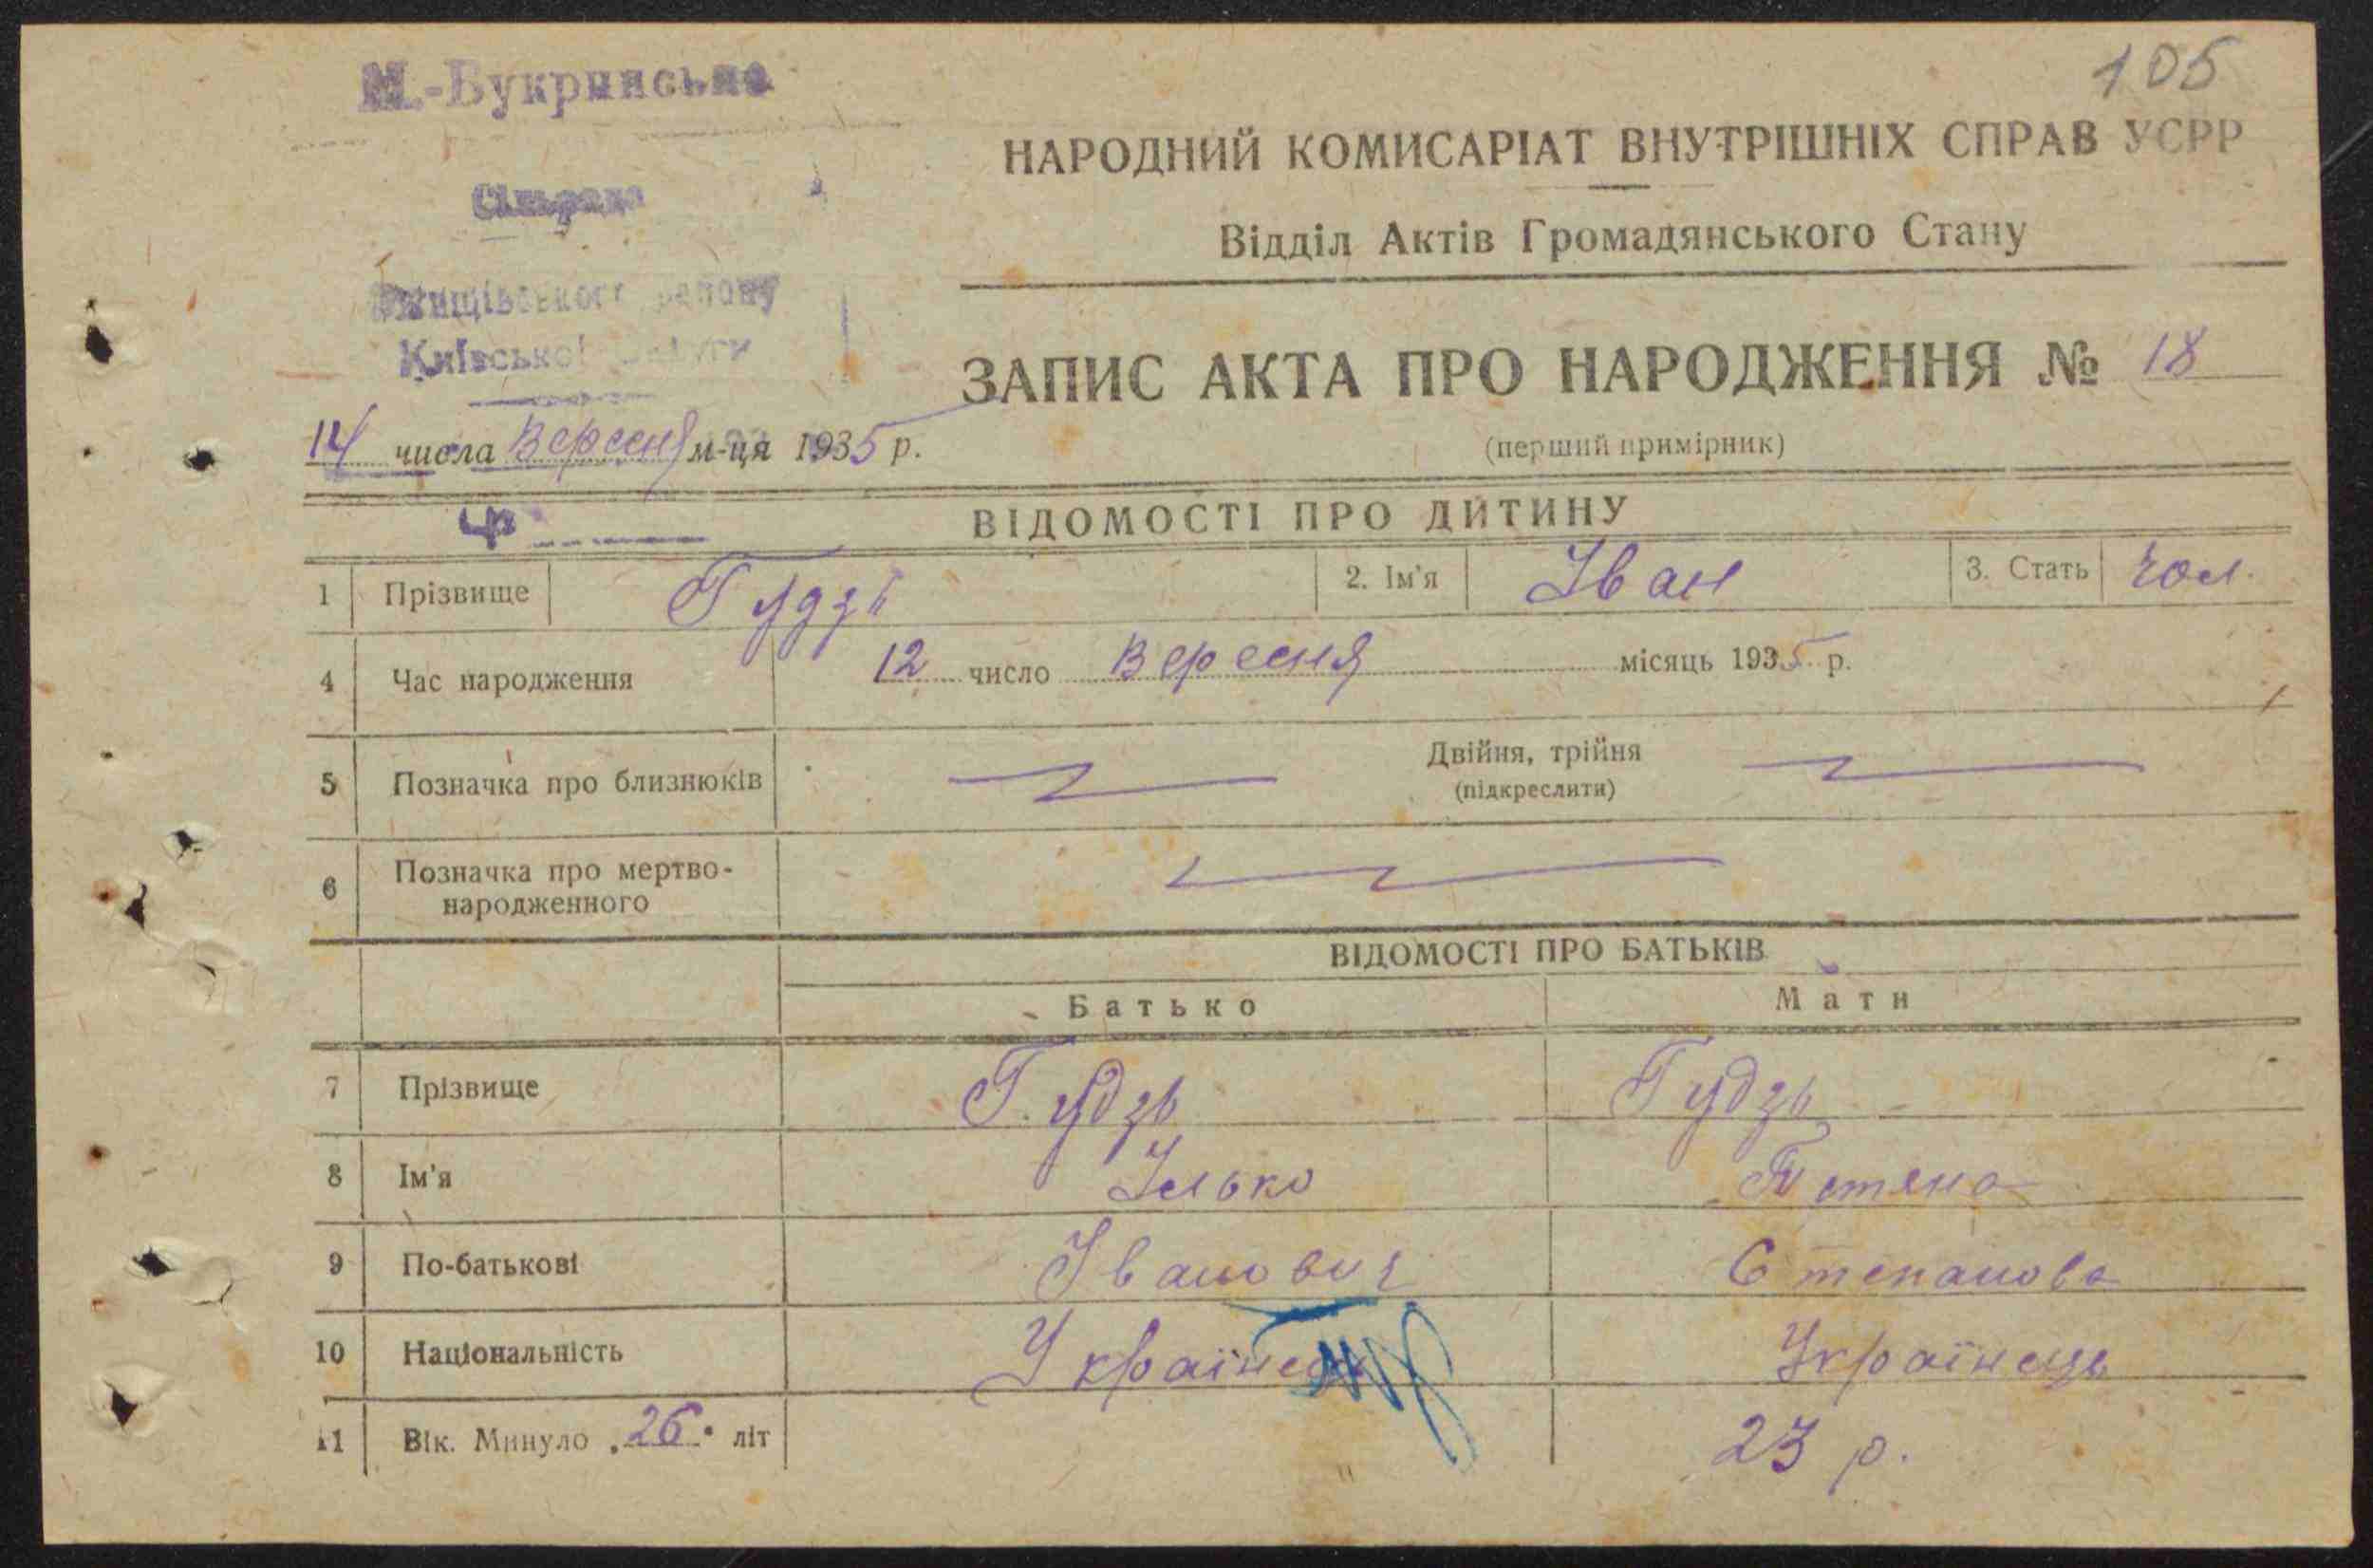 105
М.-Букринська
Сільрада
Ржищівського району
Київської округи
НАРОДНИЙ КОМИСАРІАТ ВНУТРІШНІХ СПРАВ УСРР
Відділ Актів Громадянського Стану
ЗАПИС АКТА ПРО НАРОДЖЕННЯ № 18
(перший примірник)
14 числа Вересня м-ця 1935 р.
ВІДОМОСТІ ПРО ДИТИНУ
1 Прізвище Гудзь 2. Ім'я Іван 3. Стать чол.
4 Час народження 12 число Вересня місяць 1935 р.
5 Позначка про близнюків Двійня, трійня
(підкреслити)
6 Позначка про мертво-
народженного
ВІДОМОСТІ ПРО БАТЬКІВ
Батько Мати
7 Прізвище Гудзь Гудзь
8 Ім'я Ілько Тетяна
9 По-батькові Іванович Степанова
10 Національність Українець Українець
11 Вік. Минуло 26 літ 23 р.